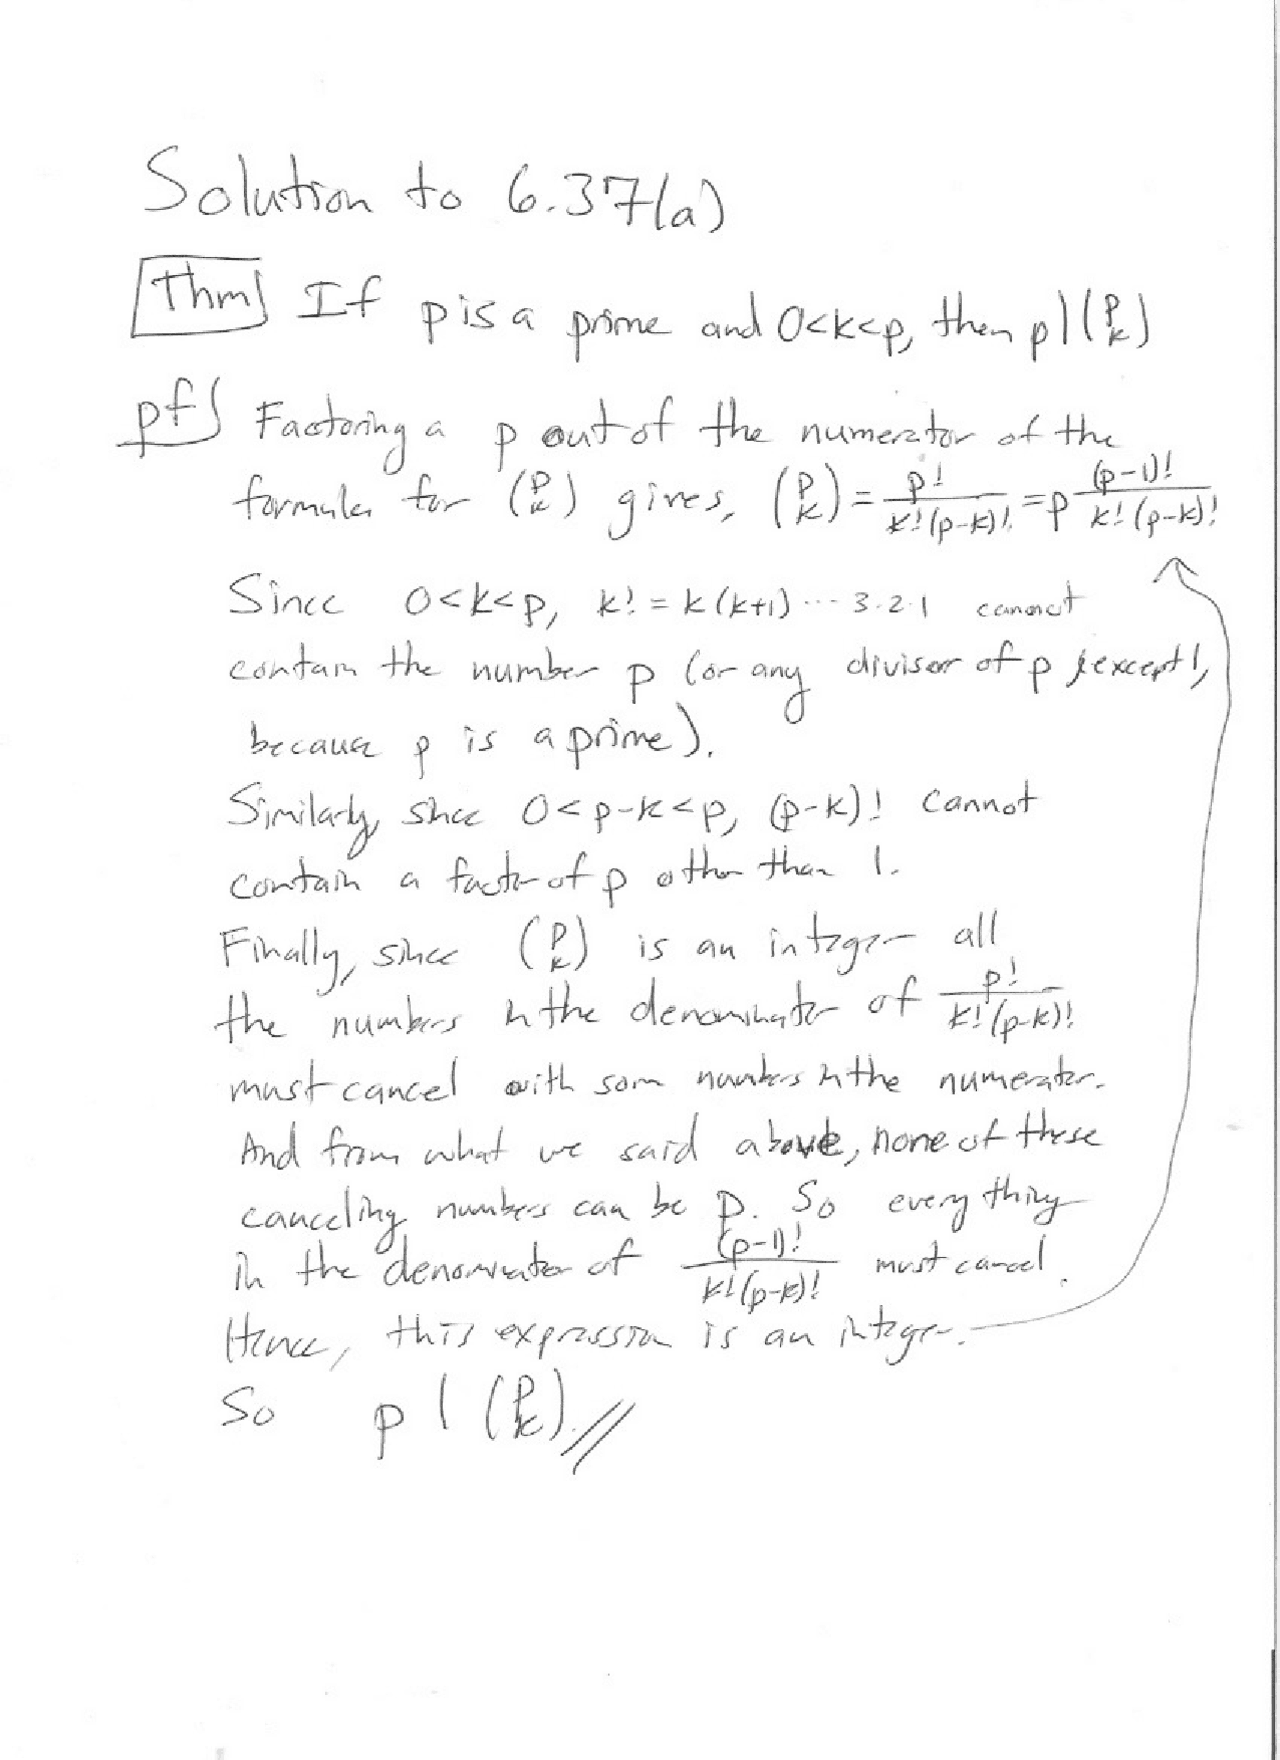 Solution to 6.37(a)
Thm) If p is a prime and 0<k<p, then p | (p k)
pf) Factoring a p out of the numerator of the
formula for (p k) gives, (p k) = p!/k!(p-k)! = p (p-1)!/k!(p-k)!
Since 0<k<p, k! = k(k+1)⋯3·2·1 cannot
contain the number p (or any divisor of p except 1,
because p is a prime).
Similarly, since 0<p-k<p, (p-k)! cannot
contain a factor of p other than 1.
Finally, since (p k) is an integer all
the numbers in the denominator of p!/k!(p-k)!
must cancel with som numbers in the numerator.
And from what we said above, none of these
canceling numbers can be p. So everything
in the denominator of (p-1)!/k!(p-k)! must cancel.
Hence, this expression is an integer.
So p | (p k).//